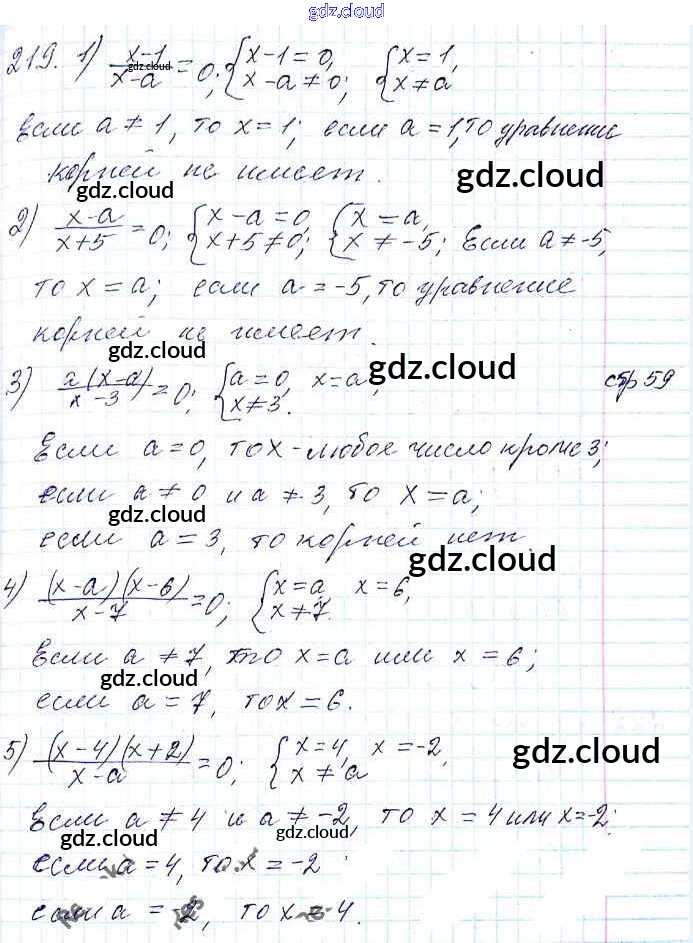 gdz.cloud
219. 1) x-1/x-a = 0; {x-1=0, x-a≠0; {x=1, x≠a
gdz.cloud
Если a≠1, то x=1; если a=1, то уравнение
корней не имеет.
gdz.cloud gdz.cloud
2) x-a/x+5 = 0; {x-a=0, x+5≠0; {x=a, x≠-5; Если a≠-5,
то x=a; если a=-5, то уравнение
корней не имеет.
gdz.cloud gdz.cloud
3) a(x-a)/x-3 = 0; {a=0, x=a, x≠3. стр 59
Если a=0, то x-любое число кроме 3;
если a≠0 и a≠3, то x=a;
gdz.cloud
если a=3, то корней нет.
gdz.cloud
4) (x-a)(x-6)/x-7 = 0; {x=a, x=6, x≠7.
Если a≠7, то x=a или x=6;
gdz.cloud
если a=7, то x=6.
5) (x-4)(x+2)/x-a = 0; {x=4, x=-2, x≠a
gdz.cloud
Если a≠4 и a≠-2, то x=4 или x=-2;
gdz.cloud gdz.cloud
если a=4, то x=-2
если a=-2, то x=4.